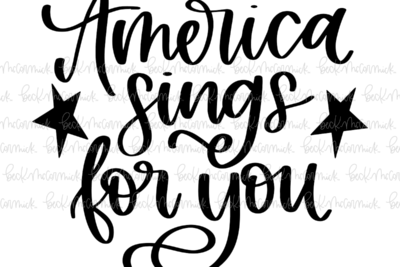 America
sings
for you